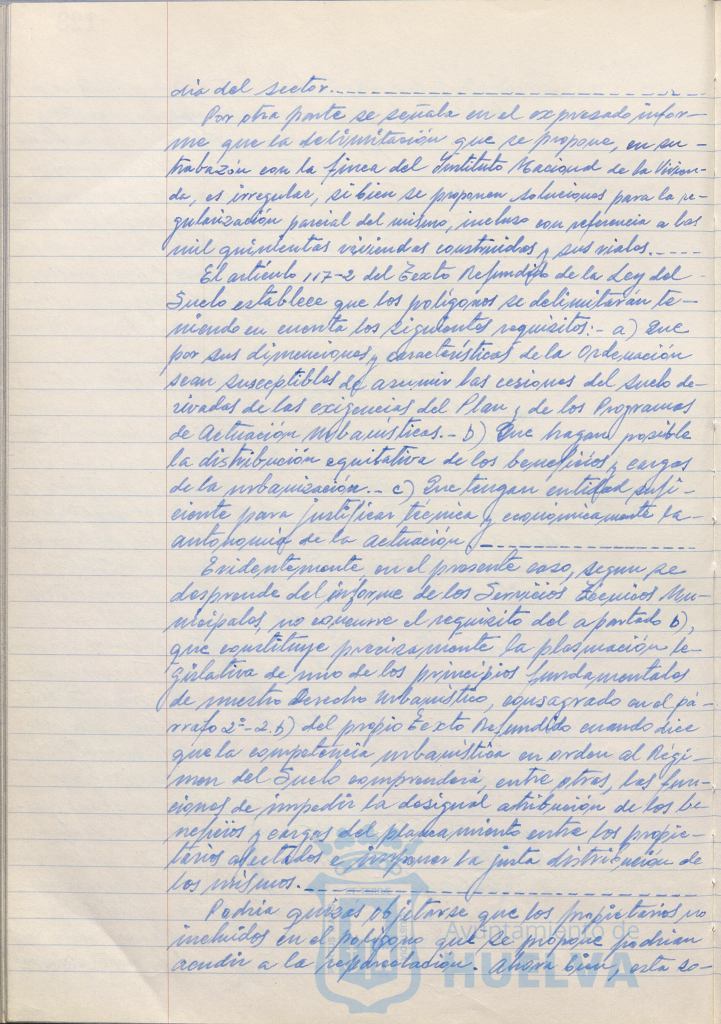 dia del sector.
Por otra parte se señala en el expresado infor-
me que la delimitación que se propone, en su
trabazón con la finca del Instituto Nacional de la Vivien-
da, es irregular, si bien se proponen soluciones para la re-
gularización parcial del mismo, incluso con referencia a las
mil quinientas viviendas construidas y sus viales.
El artículo 117-2 del Texto Refundido de la Ley del
Suelo establece que los polígonos se delimitarán te-
niendo en cuenta los siguientes requisitos:- a) Que
por sus dimensiones y características de la Ordenación
sean susceptibles de asumir las cesiones del suelo de-
rivadas de las exigencias del Plan y de los Programas
de Actuación Urbanísticas.- b) Que hagan posible
la distribución equitativa de los beneficios y cargas
de la urbanización.- c) Que tengan entidad sufi-
ciente para justificar técnica y económicamente la
autonomía de la actuación
Evidentemente en el presente caso, segun se
desprende del informe de los Servicios Técnicos Mu-
nicipales, no concurre el requisito del apartado b),
que constituye precisamente la plasmación le-
gislativa de uno de los principios fundamentales
de nuestro Derecho Urbanístico, consagrado en el pá-
rrafo 2º-2.b) del propio Texto Refundido cuando dice
que la competencia urbanística en orden al Régi-
men del Suelo comprenderá, entre otras, las fun-
ciones de impedir la desigual atribución de los be-
neficios y cargas del planeamiento entre los propie-
tarios afectados e imponer la justa distribución de
los mismos.
Podría quizas objetarse que los propietarios no
incluidos en el polígono que se propone podrian
acudir a la reparcelación. Ahora bien, esta so-
Ayuntamiento de
HUELVA